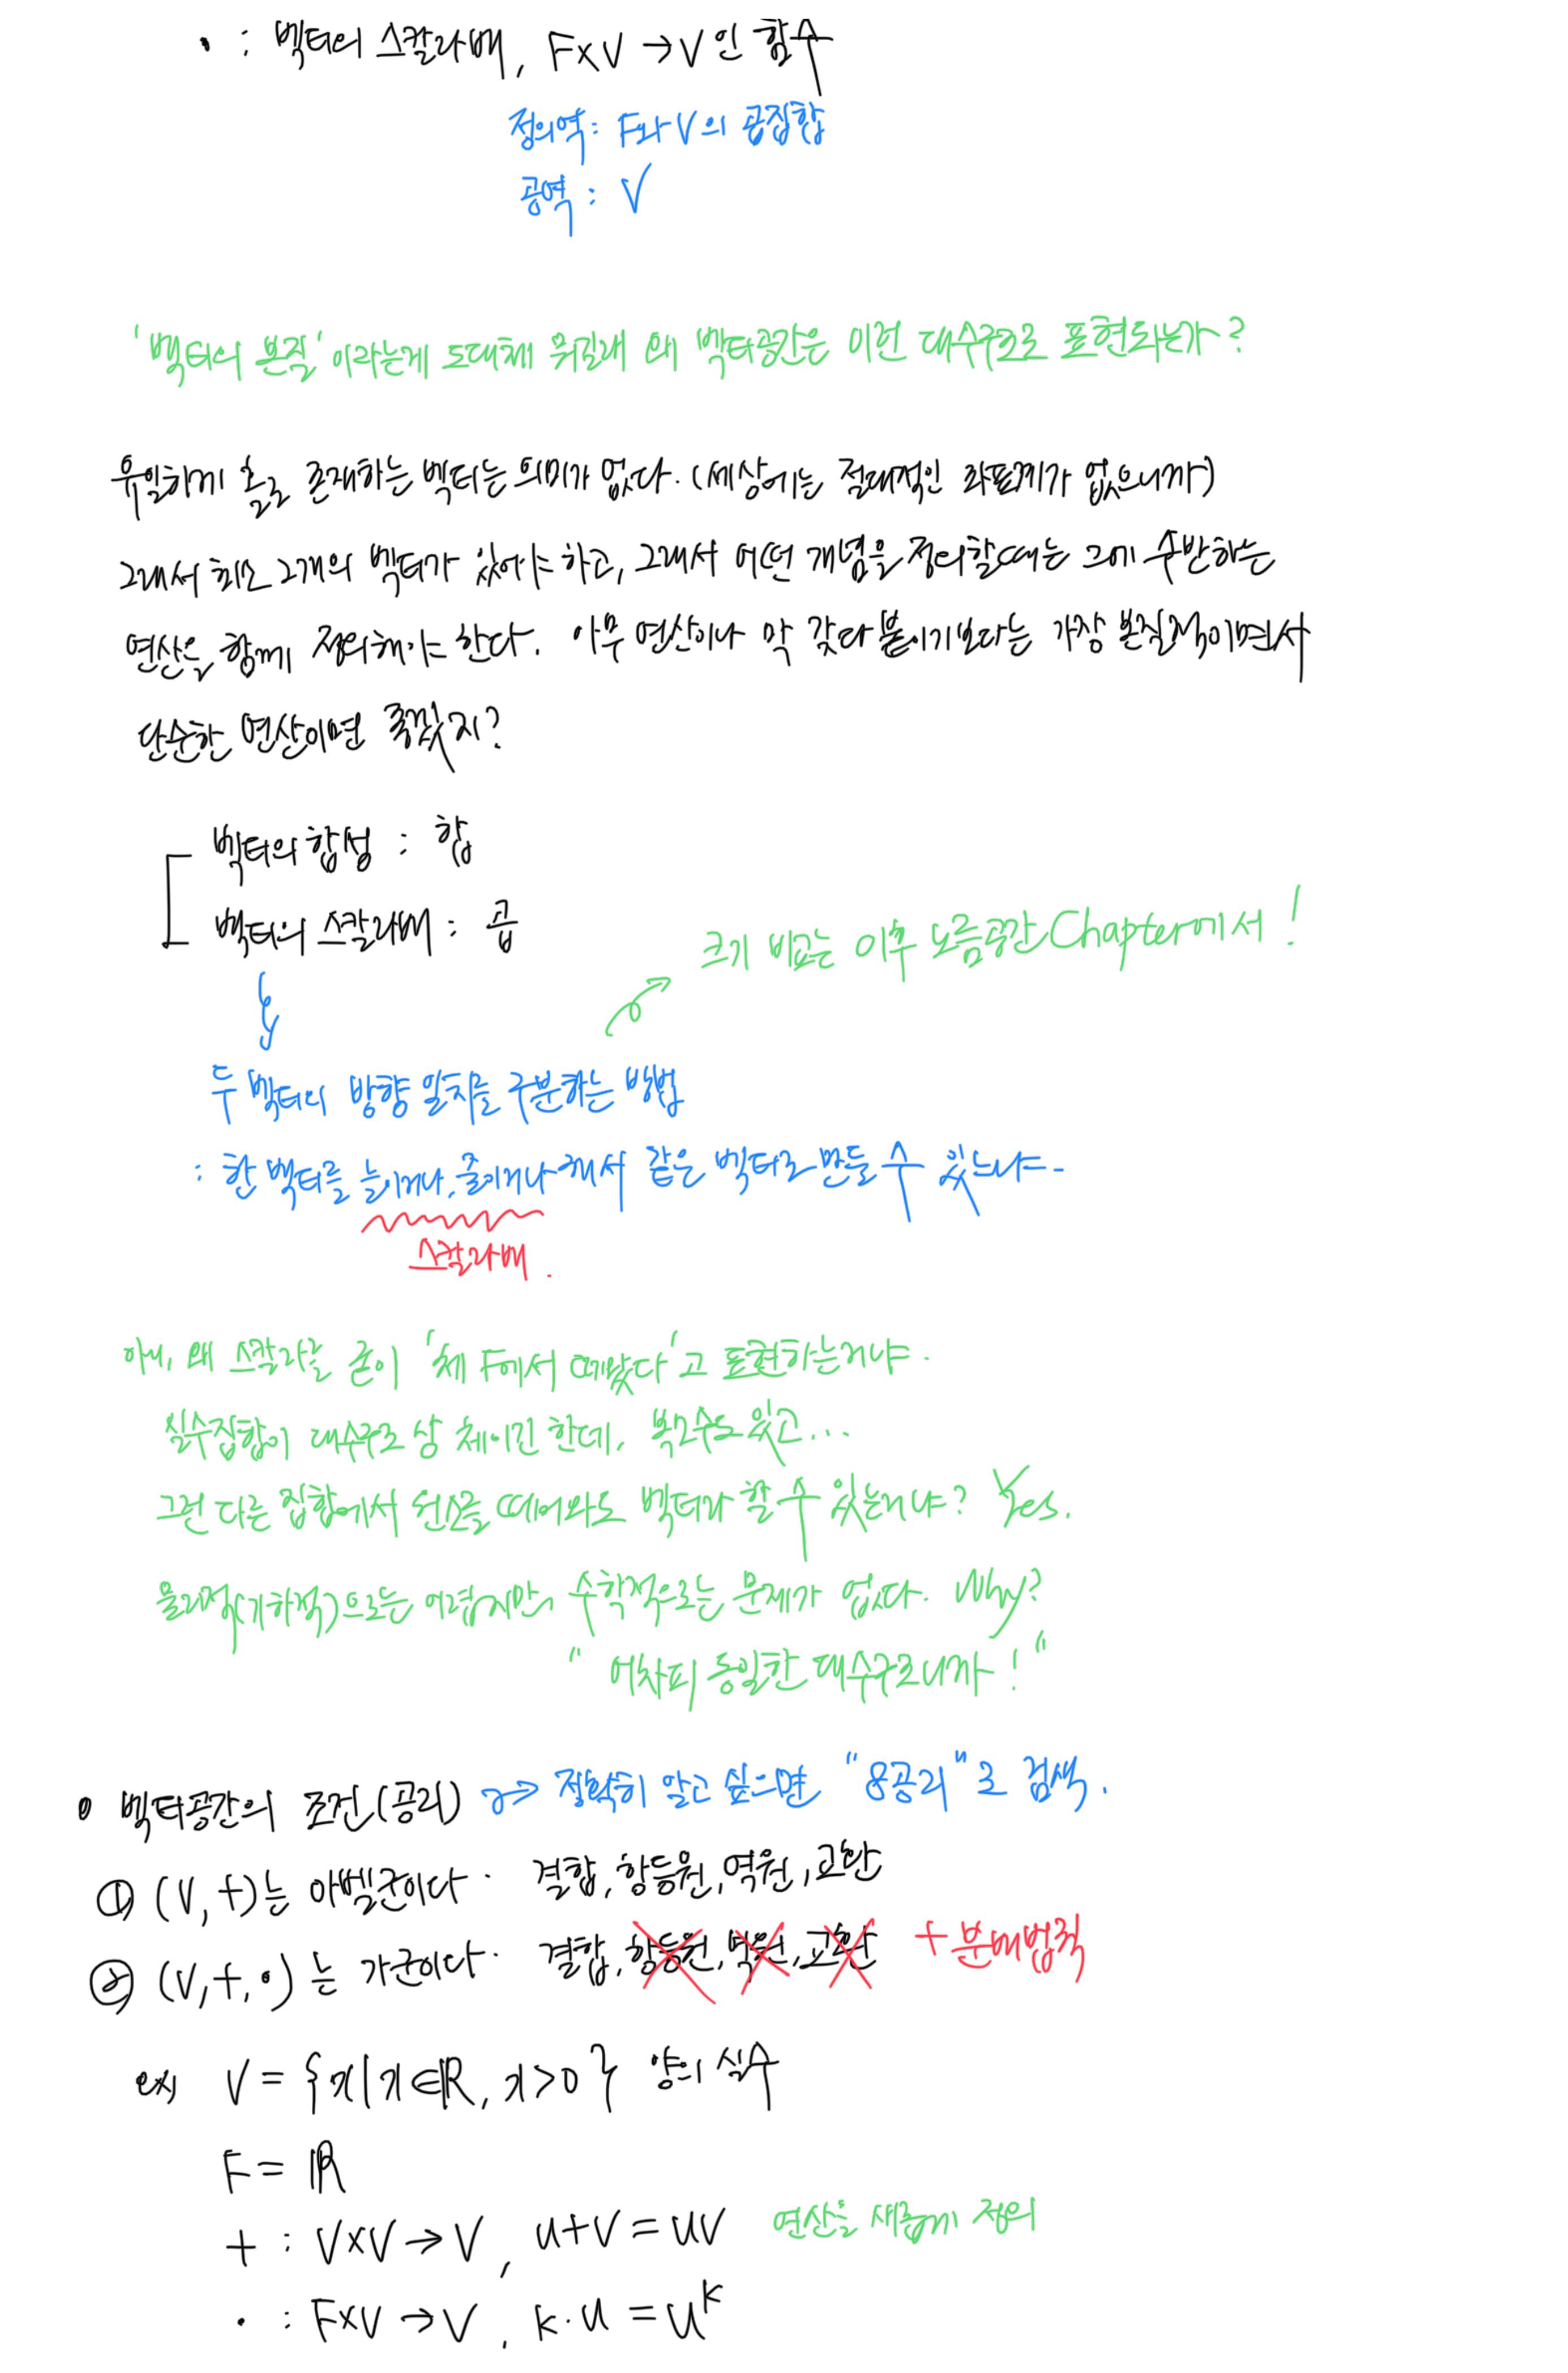 • : 벡터의 스칼라배, F×V → V인 함수
정의역 : F와 V의 곱집합
공역 : V
'벡터의 본질' 이라는게 도대체 뭐길래 왜 벡터공간은 이런 대수구조로 표현되는가?
유일하게 홀로 존재하는 벡터는 의미가 없다. (세상에는 절대적인 좌표계가 없으니까)
그래서 최소 2개의 벡터가 있어야 하고, 그래서 어떤 개념을 정의할때는 그에 수반하는
연산을 함께 정의해야 한다. 아무 연산이나 막 갖다 붙이기보다는 가장 본질적이면서
단순한 연산이면 좋겠지?
벡터의 합성 : 합
벡터의 스칼라배 : 곱
크기 비교는 이후 노름공간 Chapter에서!
두 벡터의 방향 일치를 구분하는 방법
: 한 벡터를 늘이거나, 줄이거나 해서 같은 벡터로 만들 수 있느냐.
스칼라배.
아니, 왜 스칼라를 굳이 '체 F에서 떼왔다'고 표현하는거야.
실수집합이 대수구조 상 체이긴 한데, 복소수도 있고...
그런 다른 집합에서 원소를 떼어와도 벡터라 할 수 있는거냐? Yes.
물리적(기하적)으로는 어렵지만, 수학적으로는 문제가 없다. Why?
" 어차피 동일한 대수구조니까! "
• 벡터공간의 조건(공리) → 정확히 알고 싶으면 "8공리"로 검색.
① (V, +)는 아벨군이다. 결합, 항등원, 역원, 교환
② (V, +, •)는 가군이다. 결합, 항등원, 역원, 교환 + 분배법칙
ex) V = {x | x ∈ ℝ, x > 0} 양의 실수
F = ℝ
+ : V×V → V, u+v = uv 연산을 새롭게 정의
• : F×V → V, k·u = u^k